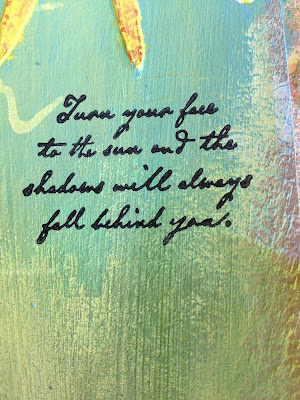 Turn your face
to the sun and the
shadows will always
fall behind you.